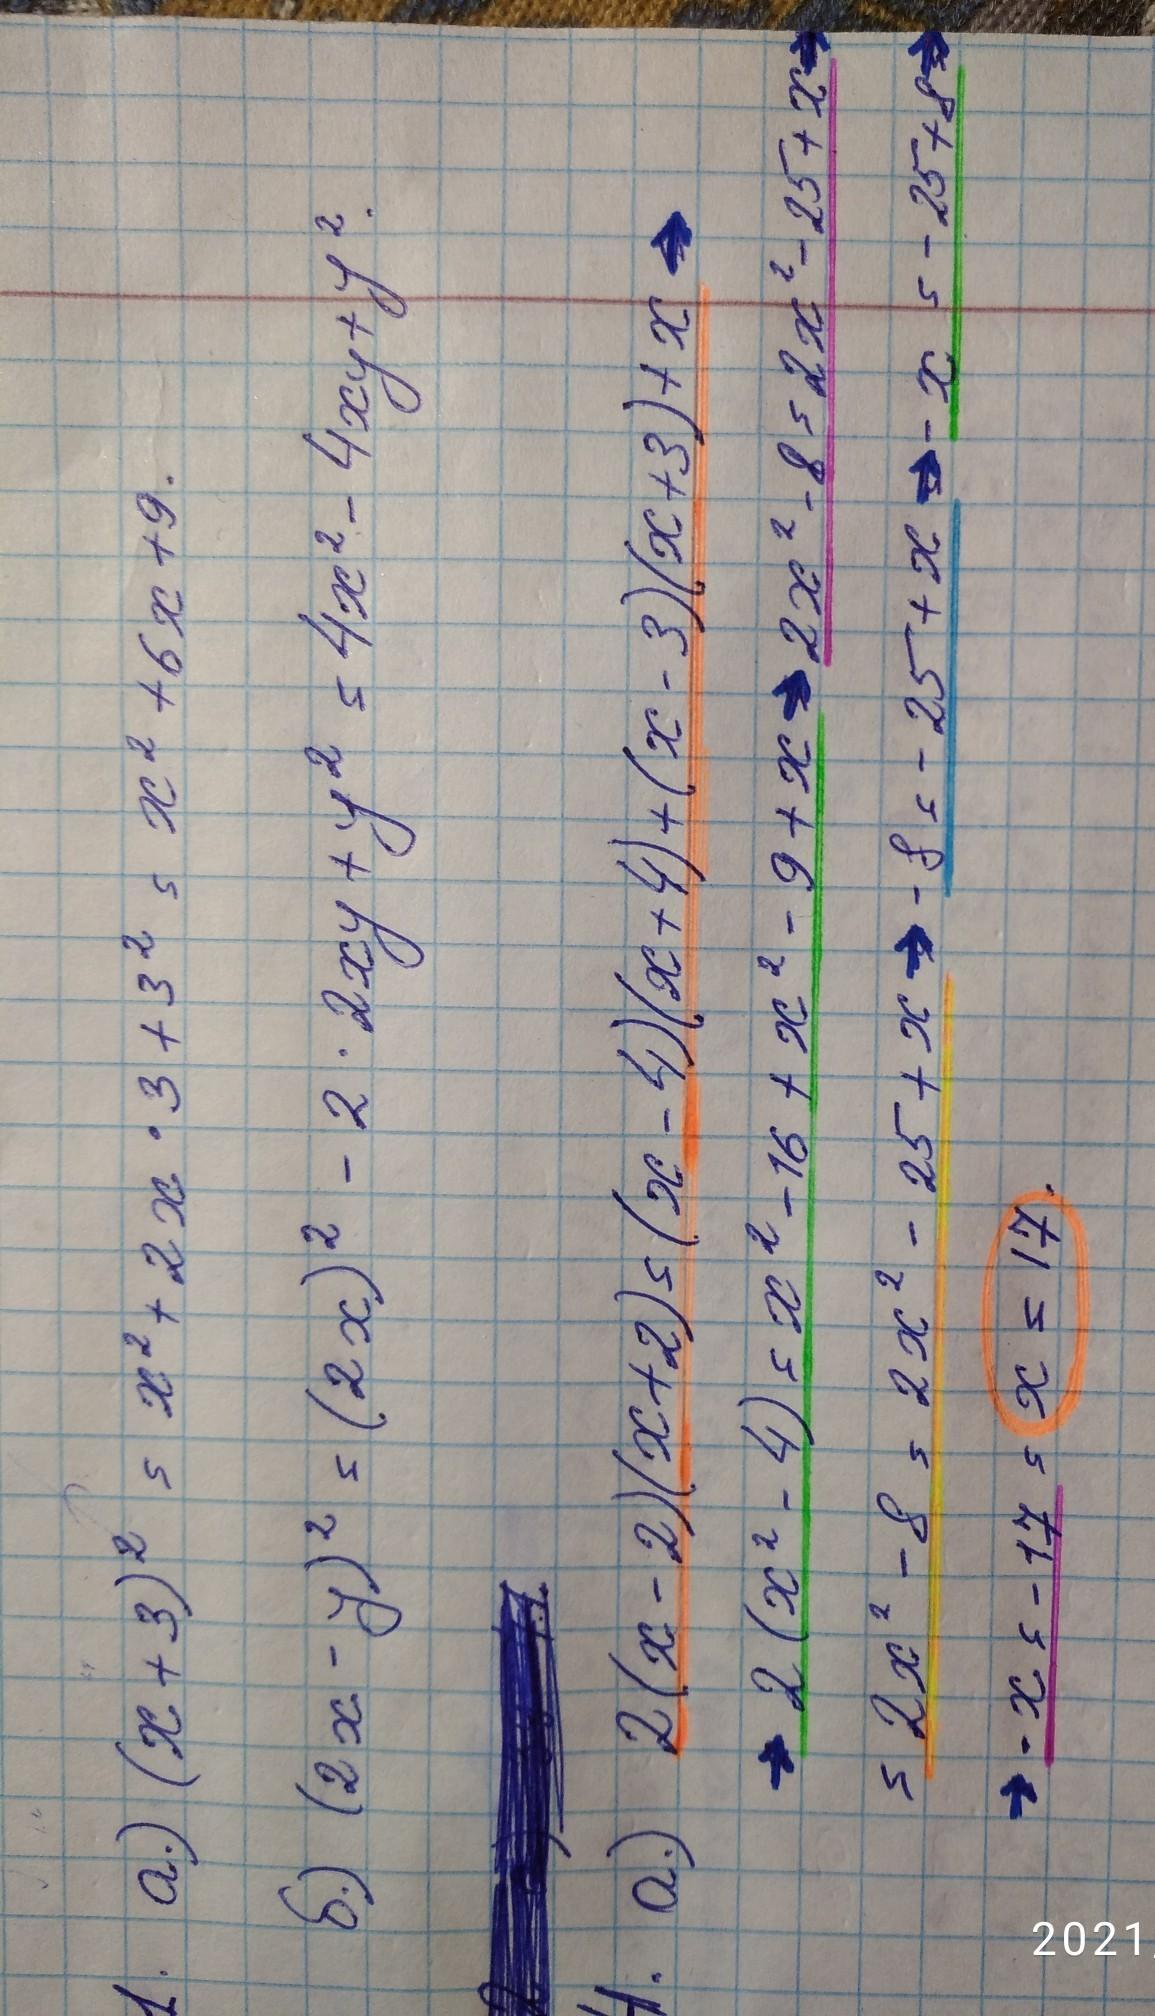 1. а.) (x+3)² = x²+2x·3+3² = x²+6x+9.
б.) (2x-y)² = (2x)²-2·2xy+y² = 4x²-4xy+y².
4. а.) 2(x-2)(x+2)=(x-4)(x+4)+(x-3)(x+3)+x →
→ 2(x²-4)=x²-16+x²-9+x → 2x²-8=2x²-25+x →
= 2x²-8=2x²-25+x → -8=-25+x → -x=-25+8 →
→ -x=-17 = x=17.
2021